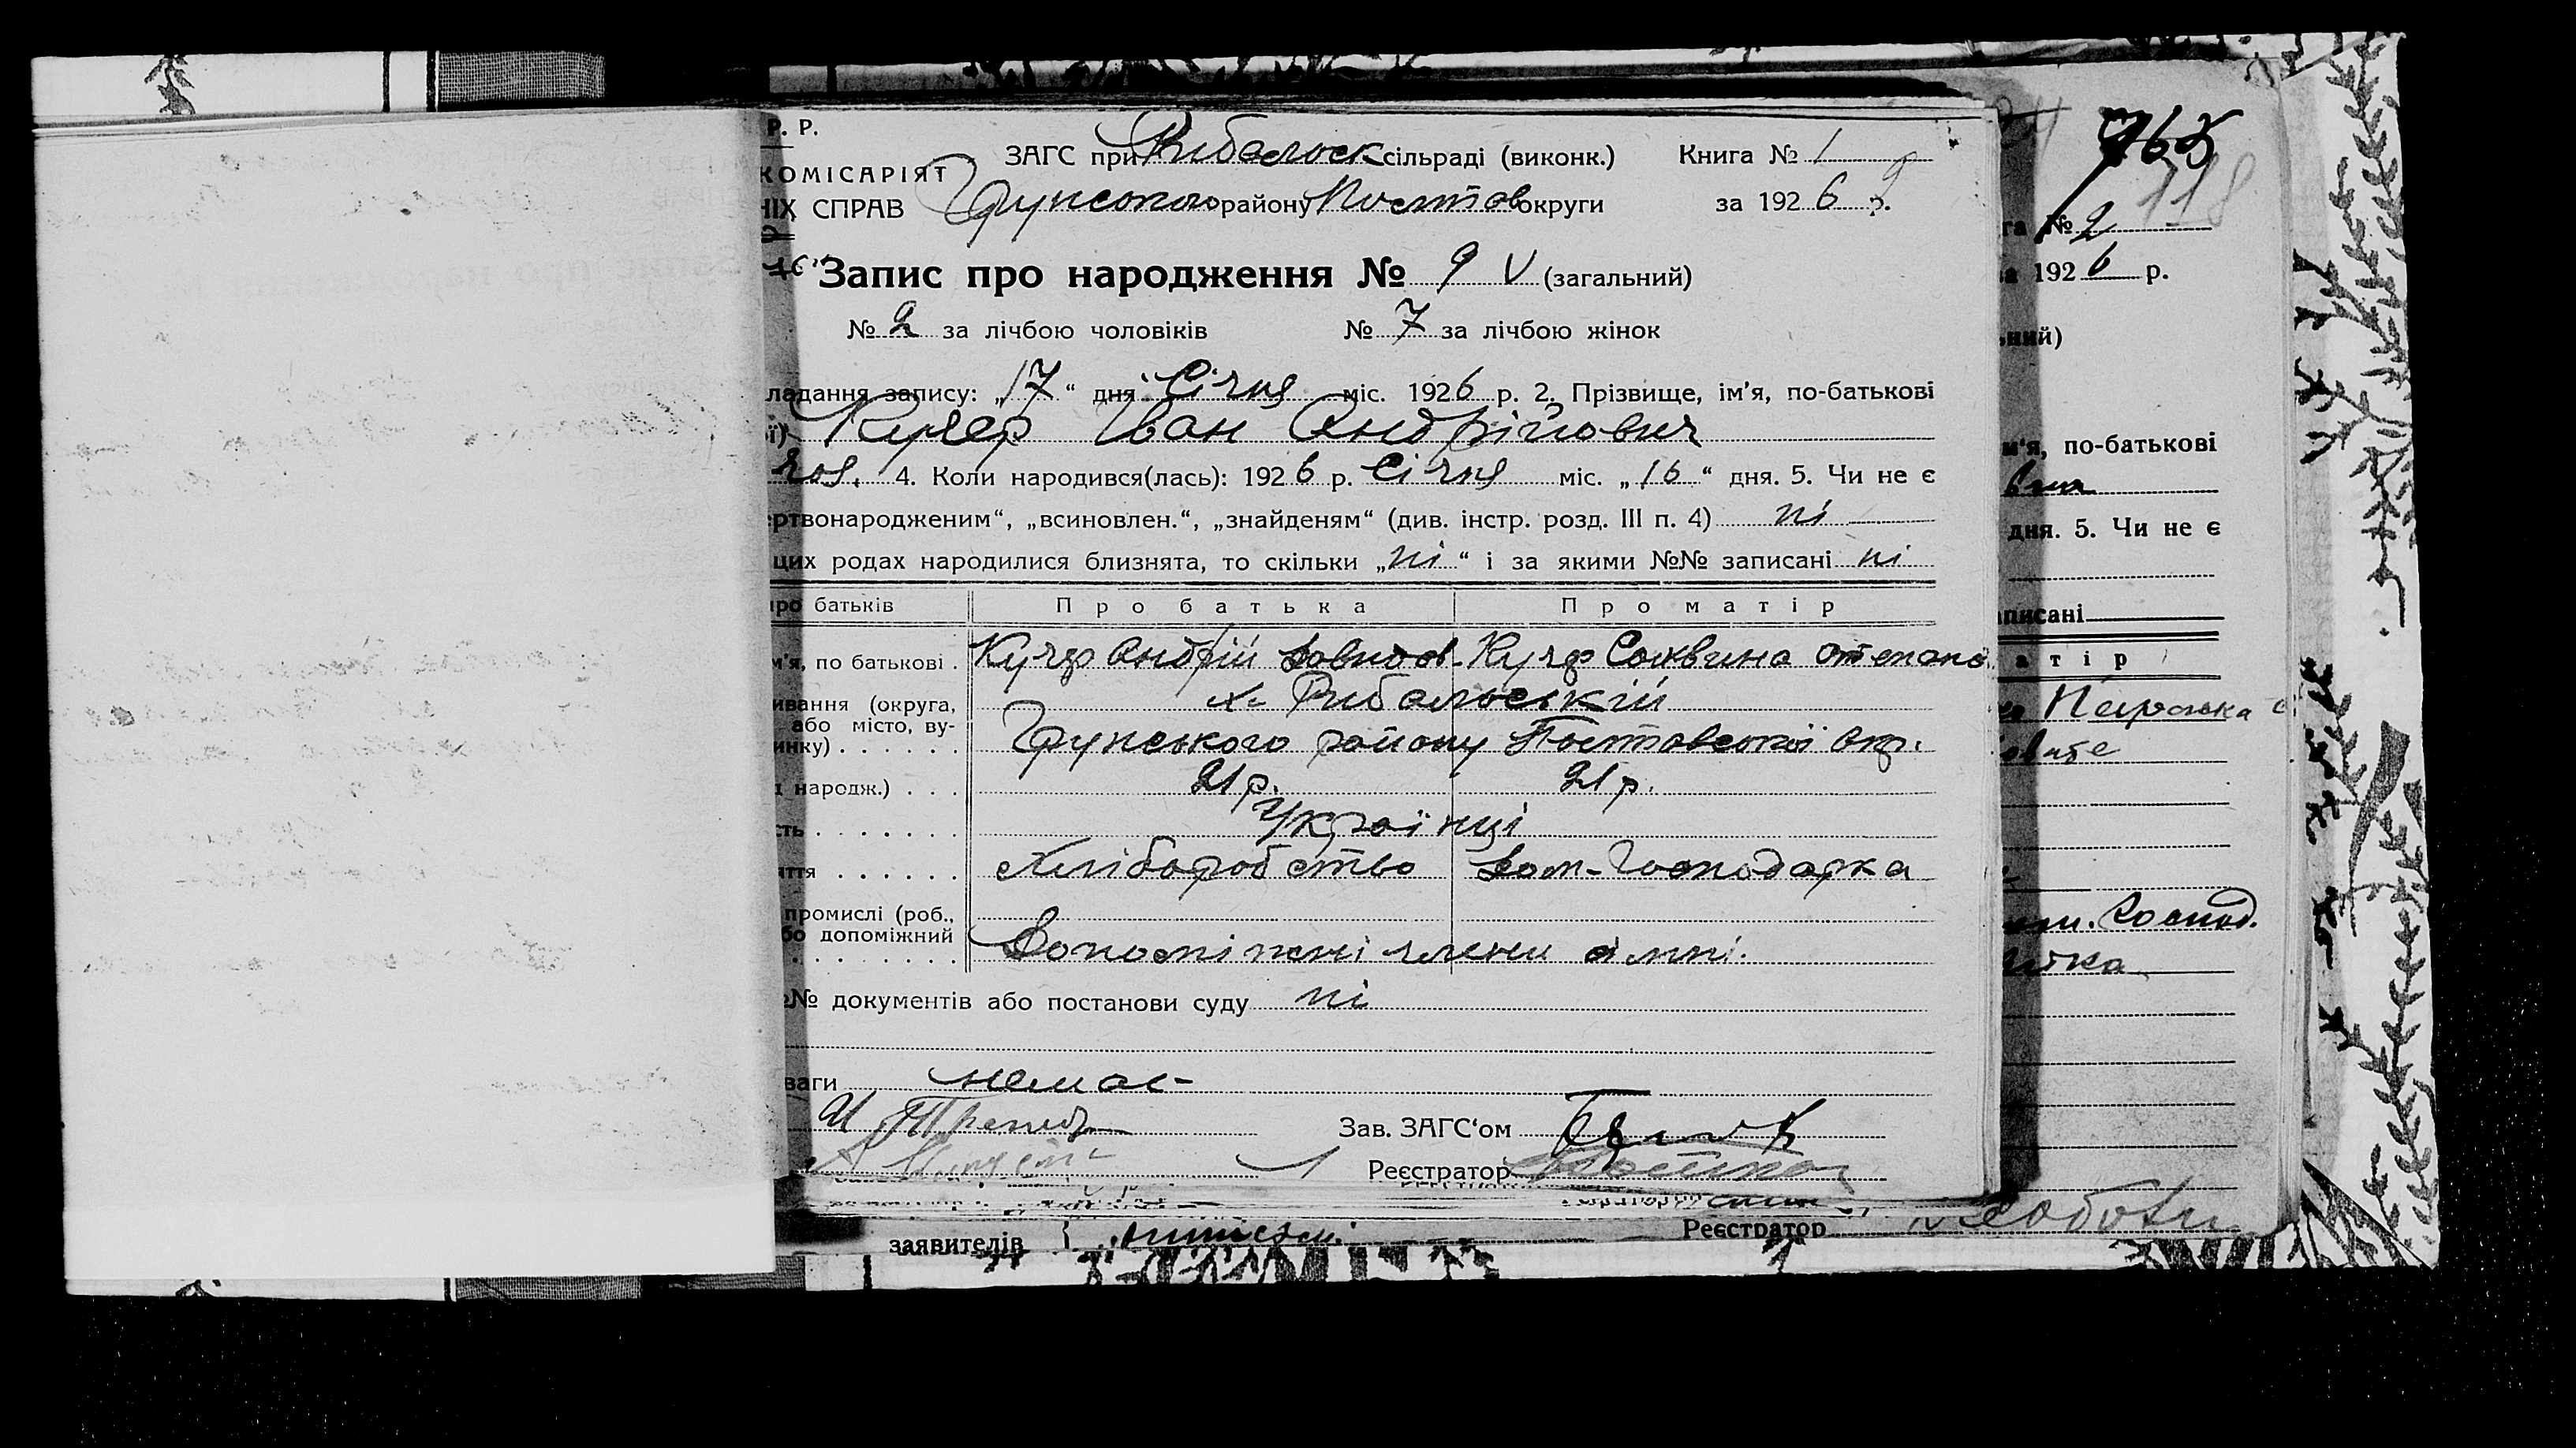 Р. Р.
КОМІСАРІЯТ
ІХ СПРАВ
ЗАГС при Рибальск сільраді (виконк.) Книга № 1
Грунського району Полтав округи за 1926 р.
"16" Запис про народження № 9 V (загальний)
№ 2 за лічбою чоловіків № 7 за лічбою жінок
ладання запису: „17“ дня Січня міс. 1926 р. 2. Прізвище, ім’я, по-батькові
ї) Кучер Іван Андрійович
чол. 4. Коли народився(лась): 1926 р. Січня міс. „16“ дня. 5. Чи не є
ертвонародженим“, „всиновлен.“, „знайденям“ (див. інстр. розд. III п. 4) ні
цих родах народилися близнята, то скільки „ні“ і за якими №№ записані ні
про батьків Про батька Про матір
м’я, по батькові . Кучер Андрій Кучер Степано
ивання (округа, х. Рибальській
або місто, ву-
инку) . . . . . . Грунського району Полтавської окр.
народж.) . . . 21 р. 21 р.
сть . . . . . . . Українці
яття . . . . . . Хліборобство Дом-Господарка
промислі (роб.,
бо допоміжний
. . . . . . . . Допоміжні члени сімні.
№ документів або постанови суду ні
ваги немає
Зав. ЗАГС‘ом
Реєстратор
заявителів
Реєстратор
763
118
га № 2
а 1926 р.
ьний)
м‘я, по-батькові
вна
дня. 5. Чи не є
аписані
атір
господ.